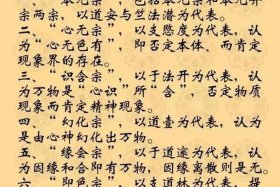 宗两宗，以道安与竺法潜为代表。
二、“心无宗”，以支愍度为代表，认
为“心无色有”，即否定本体、而肯定
现象界的存在。
三、“识含宗”，以于法开为代表，认
为万物是“心识”所“含”，否定物质
现象而肯定精神现象。
四、“幻化宗”，以道壹为代表，认为
是由心神幻化出万物。
五、“缘会宗”，以于道邃为代表，认
为因缘和合即有万物，因缘离散则是无。
六、“即色宗”，以支道林为代表，提